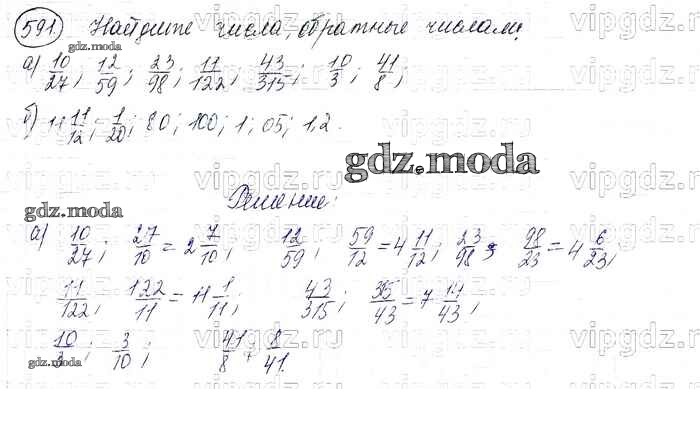 591. Найдите числа, обратные числам:
gdz.moda
а) 10/27; 12/59; 23/98; 11/122; 43/315; 10/3; 41/8;
б) 11/12; 1/20; 80; 100; 1; 05; 1,2.
gdz.moda
Решение:
gdz.moda
а) 10/27; 27/10 = 2 7/10; 12/59; 59/12 = 4 11/12; 23/98; 98/23 = 4 6/23;
11/122; 122/11 = 11 1/11; 43/315; 315/43 = 7 14/43;
10/3; 3/10; 41/8; 8/41.
gdz.moda
gdz.moda
vipgdz.ru